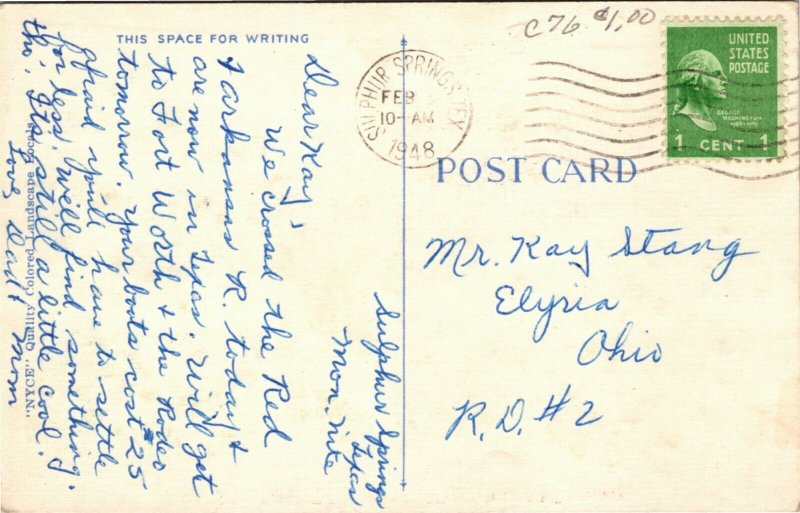 THIS SPACE FOR WRITING
Sulphur Springs
Texas
Mon. nite
Dear Kay,
We crossed the Red
& arkansas R. today &
are now in Texas. Will get
to Fort Worth & the Rodeo
tomorrow. Your boots cost $25
afraid you'll have to settle
for less. We'll find something.
tho'. It's still a little cool.
Love, Dad & Mom
"NYCE" Quality Colored Landscape
C76 $1,00
SULPHUR SPRINGS, TEX
FEB
10-AM
1948
UNITED
STATES
POSTAGE
GEORGE
WASHINGTON
1789-1797
1 CENT 1
POST CARD
Mr. Kay Stang
Elyria
Ohio
R.D. #2